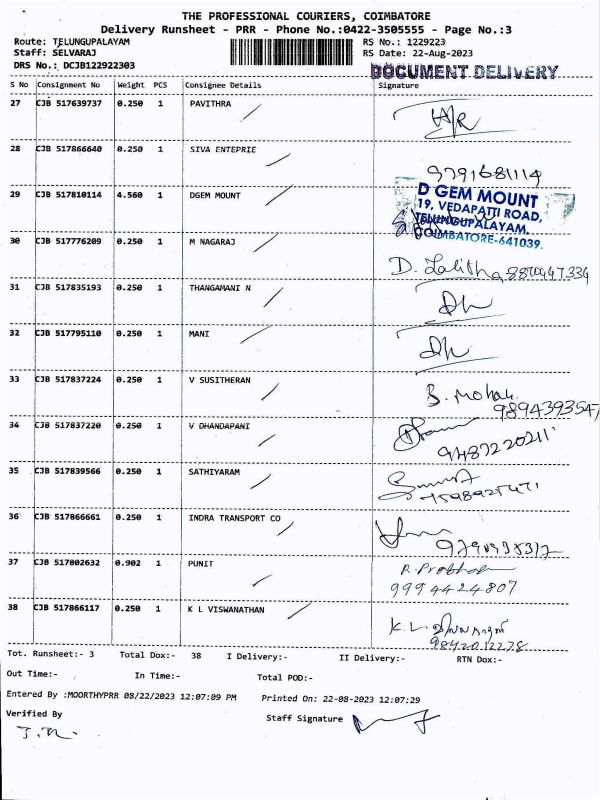 THE PROFESSIONAL COURIERS, COIMBATORE
Delivery Runsheet - PRR - Phone No.:0422-3505555 - Page No.:3
Route: TELUNGUPALAYAM RS No.: 1229223
Staff: SELVARAJ RS Date: 22-Aug-2023
DRS No.: DCJB122922303 DOCUMENT DELIVERY
S No Consignment No Weight PCS Consignee Details Signature
27 CJB 517639737 0.250 1 PAVITHRA
28 CJB 517866640 0.250 1 SIVA ENTEPRIE
9791681114
29 CJB 517810114 4.560 1 DGEM MOUNT
D GEM MOUNT
19, VEDAPATTI ROAD,
TELUNGUPALAYAM.
COIMBATORE-641039.
30 CJB 517776209 0.250 1 M NAGARAJ
D. Lalitha
31 CJB 517835193 0.250 1 THANGAMANI N
32 CJB 517795110 0.250 1 MANI
33 CJB 517837224 0.250 1 V SUSITHERAN
B. Mohan
9894393547
34 CJB 517837220 0.250 1 V DHANDAPANI
9487220211
35 CJB 517839566 0.250 1 SATHIYARAM
36 CJB 517866661 0.250 1 INDRA TRANSPORT CO
37 CJB 517802632 0.902 1 PUNIT
R. Prabhu
9994424807
38 CJB 517866117 0.250 1 K L VISWANATHAN
K. L.
9842012278
Tot. Runsheet:- 3 Total Dox:- 38 I Delivery:- II Delivery:- RTN Dox:-
Out Time:- In Time:- Total POD:-
Entered By :MOORTHYPRR 08/22/2023 12:07:09 PM Printed On: 22-08-2023 12:07:29
Verified By Staff Signature